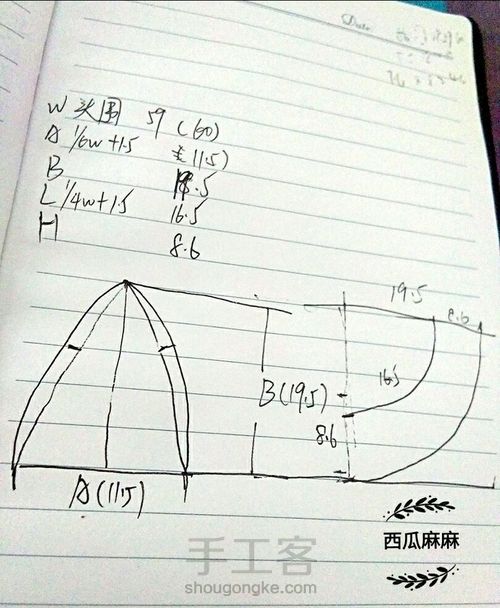 Date
W 头围 59 (60)
A 1/6w+1.5 (11.5)
B 19.5
L 1/4w+1.5 16.5
H 8.6
19.5
8.6
16.5
B(19.5)
8.6
A(11.5)
西瓜麻麻
手工客
shougongke.com